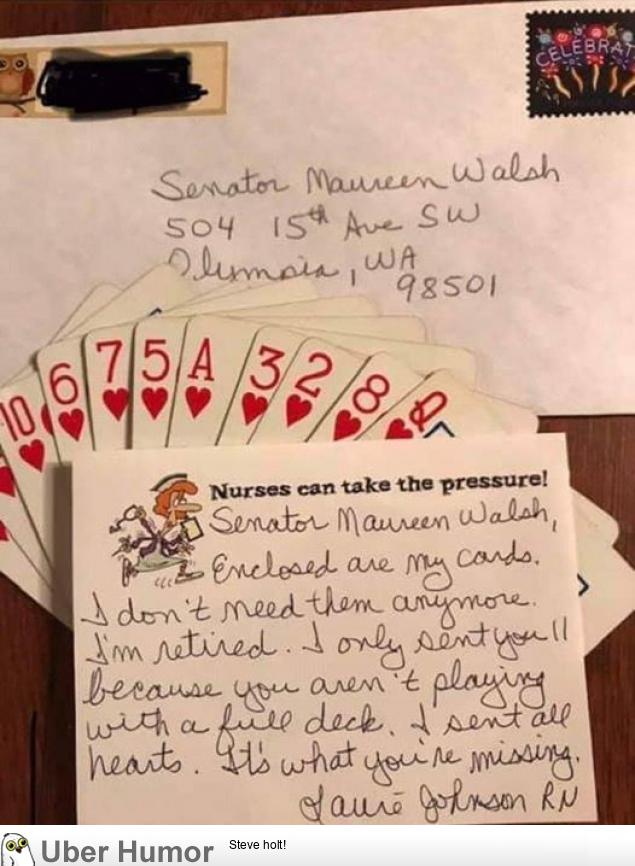 CELEBRAT
Senator Maureen Walsh
504 15th Ave SW
Olympia, WA
98501
10 6 7 5 A 3 2 8 Q
Nurses can take the pressure!
Senator Maureen Walsh,
Enclosed are my cards.
I don't need them anymore.
I'm retired. I only sent you 11
because you aren't playing
with a full deck. I sent all
hearts. It's what you're missing.
Laurie Johnson RN
Uber Humor
Steve holt!